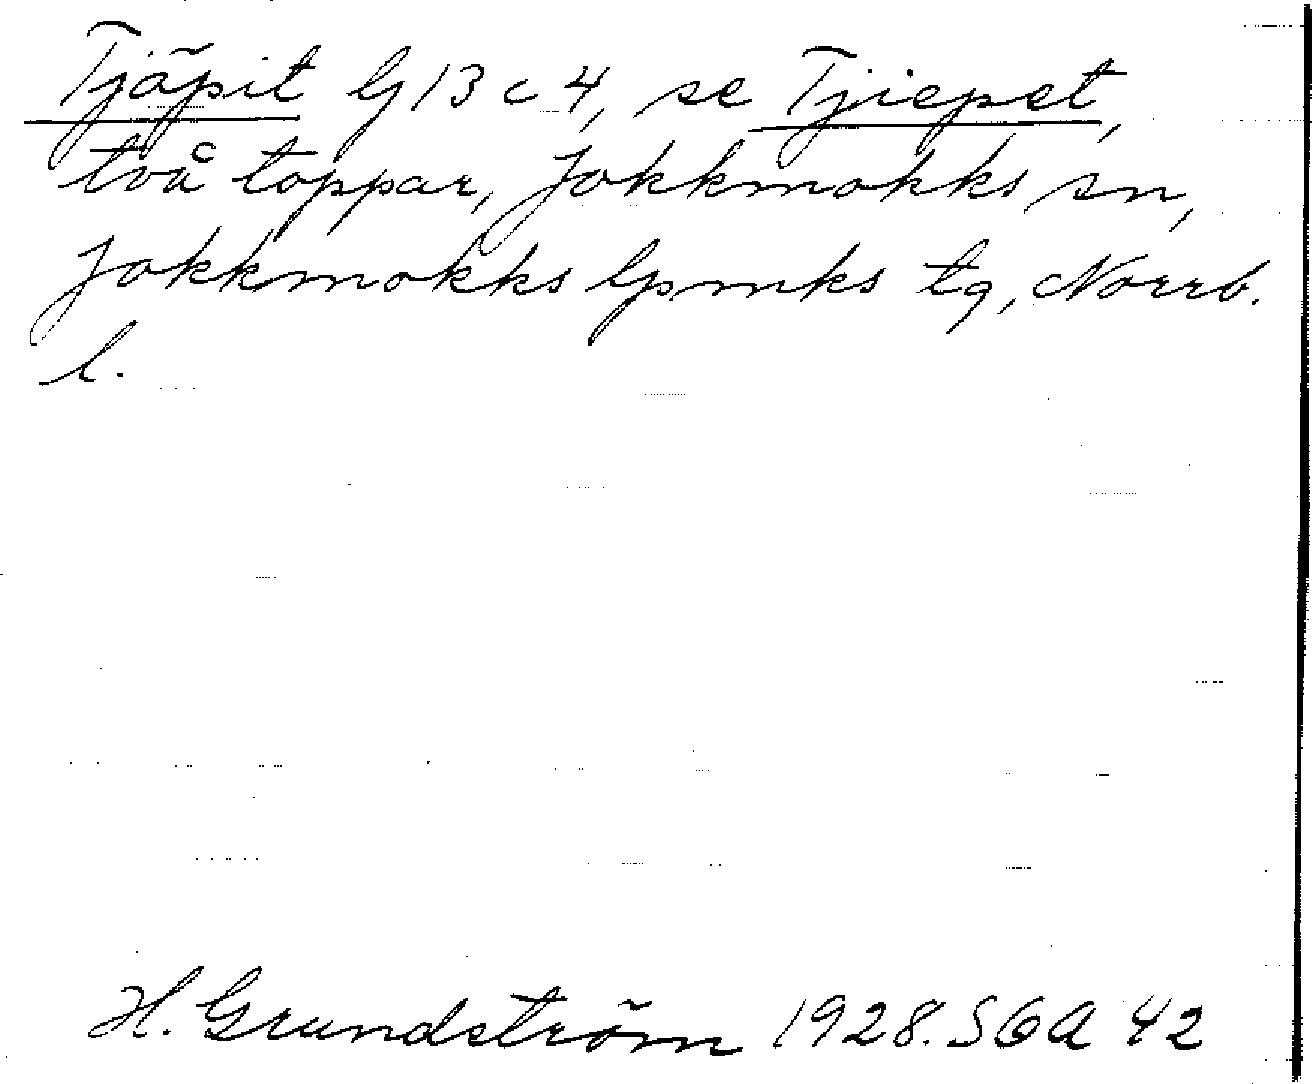 Tjäpit G 13 c 4, se Tjiepet,
två toppar, Jokkmokks sn,
Jokkmokks lpmks tg, Norrb.
l.
H. Grundström 1928. SGA 42